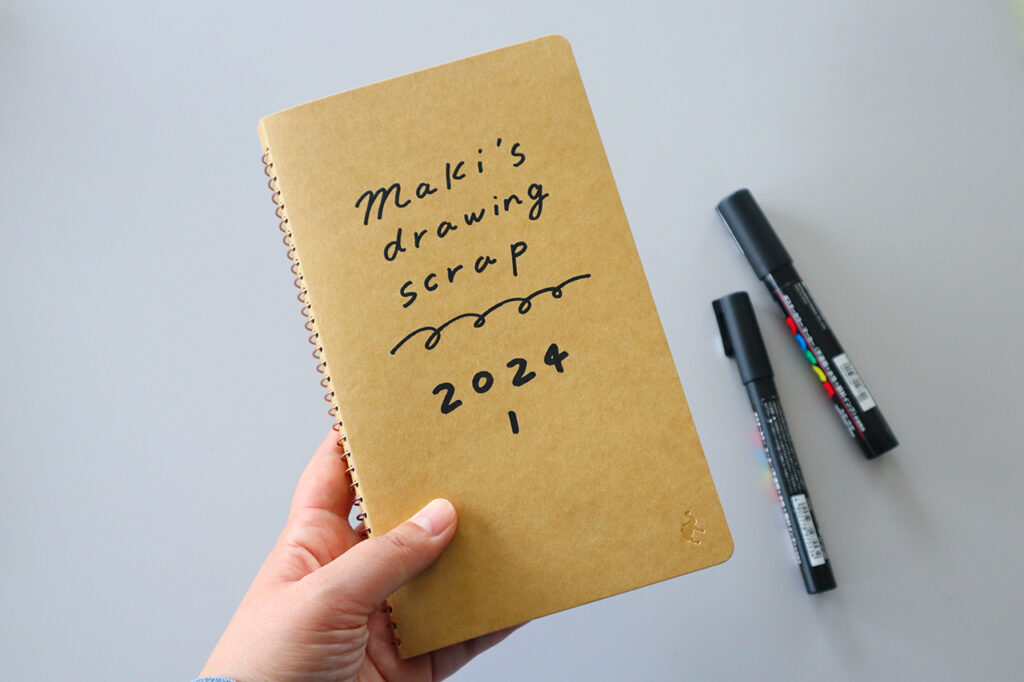 Maki's
drawing
scrap
2024
1